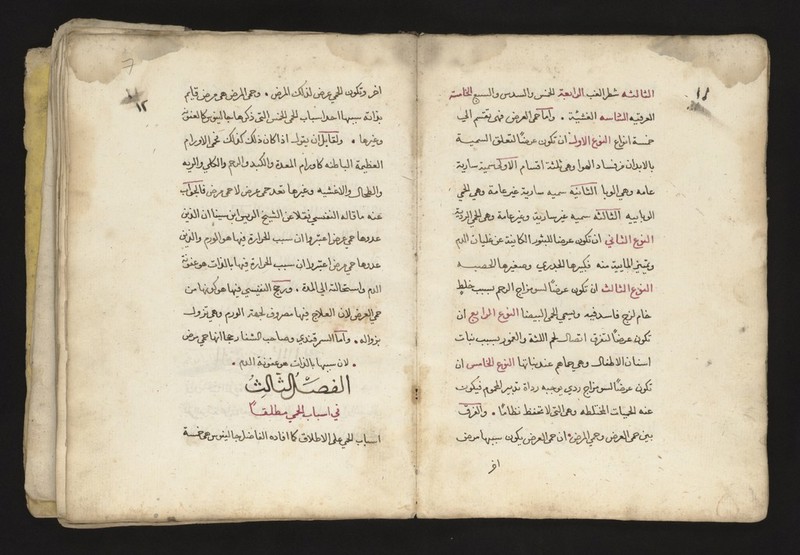 ١١
الثالثه شطر الغب الرابعة الخمس والسدس والسبع الخامسة
المحرقيه السادسه الغشيّة ٠ وأما حمى العرض فهى تنقسم الى
خمسة انواع النوع الاول ان تكون عرضًا لتعلق السمية
بالابدان من فساد الهوا وهى ثلثة اقسام الاولى سمية سارية
عامه وهى الوبا الثانيه سميه سارية غير عامة وهى الحمى
الوبايه الثالثه سميه غير سارية وغير عامة وهى الحمى الردية
النوع الثانى ان تكون عرضا للبثور الكاينة عن غليان الدم
وتميز المايية منه فكبيرها الجدرى وصغيرها الحصبه
النوع الثالث ان تكون عرضًا لسو مزاج الرحم بسبب خلط
خام لزج فاسد فيه وتسمى الحمى البيضا النوع الرابع ان
تكون عرضًا لتفرق اتصال لحم اللثة والعمور بسبب نبات
اسنان الاطفال وهى حماهم عند نباتها النوع الخامس ان
تكون عرضًا لسو مزاج ردى يوجبه رداة تدبير المحموم فيكون
عنه الحميات المختلطه وهى التى لا تحفظ نظامًا ٠ والفرق
بين حمى العرض وحمى المرض ان حمى العرض يكون سببها مرض
اخر
١٢
اخر وتكون الحمى عرض لذلك المرض ٠ وحمى المرض هى مرض قايم
بذاته سببها احد اسباب الحمى الخمس التى ذكرها جالينوس كالعفونة
وغيرها ٠ ولقايل ان يقول اذا كان ذلك كذلك فحمى الاورام
العظيمة الباطنه كاورام المعدة والكبد والرحم والكلى والريه
والطحال والاغشيه وغيرها تعد حمى عرض لا حمى مرض فالجواب
عنه ما قاله النفيسى نقلا عن الشيخ الريس ابن سينا ان الذين
عدوها حمى مرض اعتبروا ان سبب الحرارة فيها هو الورم والذين
عدوها حمى مرض اعتبروا ان سبب الحرارة فيها بالذات هو عفونة
الدم واستحالته الى المدة ٠ ورجح النفيسى فيها هو كونها من
حمى العرض لان العلاج فيها مصروف لجهة الورم وهى تزول
بزواله ٠ وأما السمرقندى وصاحب الشفا رجحا انها حمى مرض
٠ لان سببها بالذات هو عفونة الدم ٠
الفصل الثالث
فى اسباب الحمى مطلقًا
اسباب الحمى على الاطلاق كما افاده الفاضل جالينوس هى خمسة